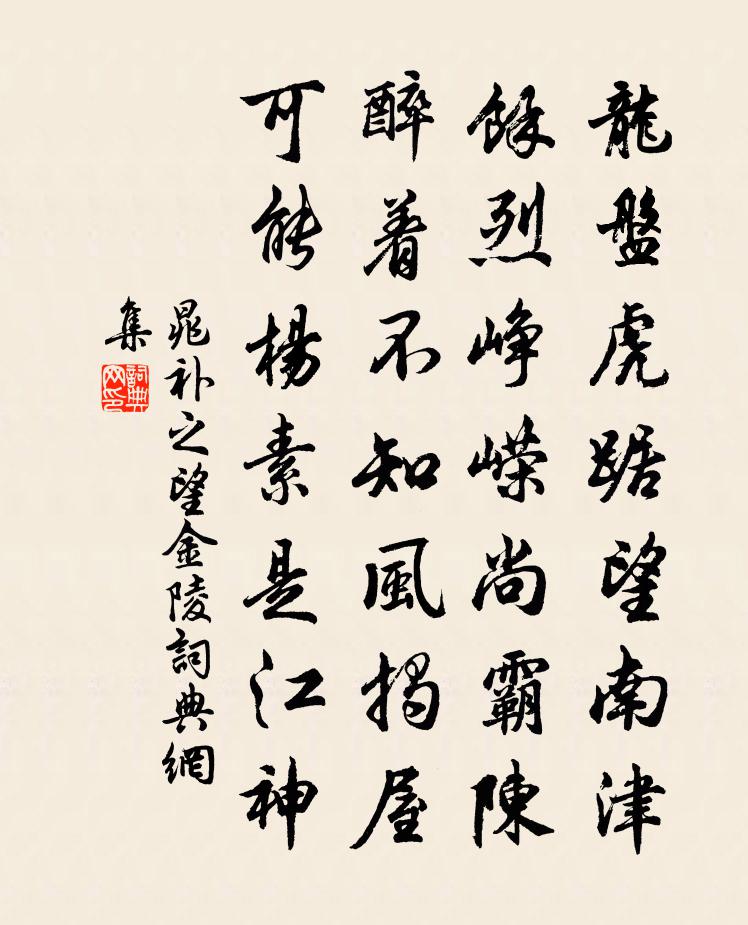 龍盤虎踞望南津
餘烈崢嶸尚霸陳
醉着不知風揭屋
可能楊素是江神
晁補之望金陵詞典網
集
詞典
网印